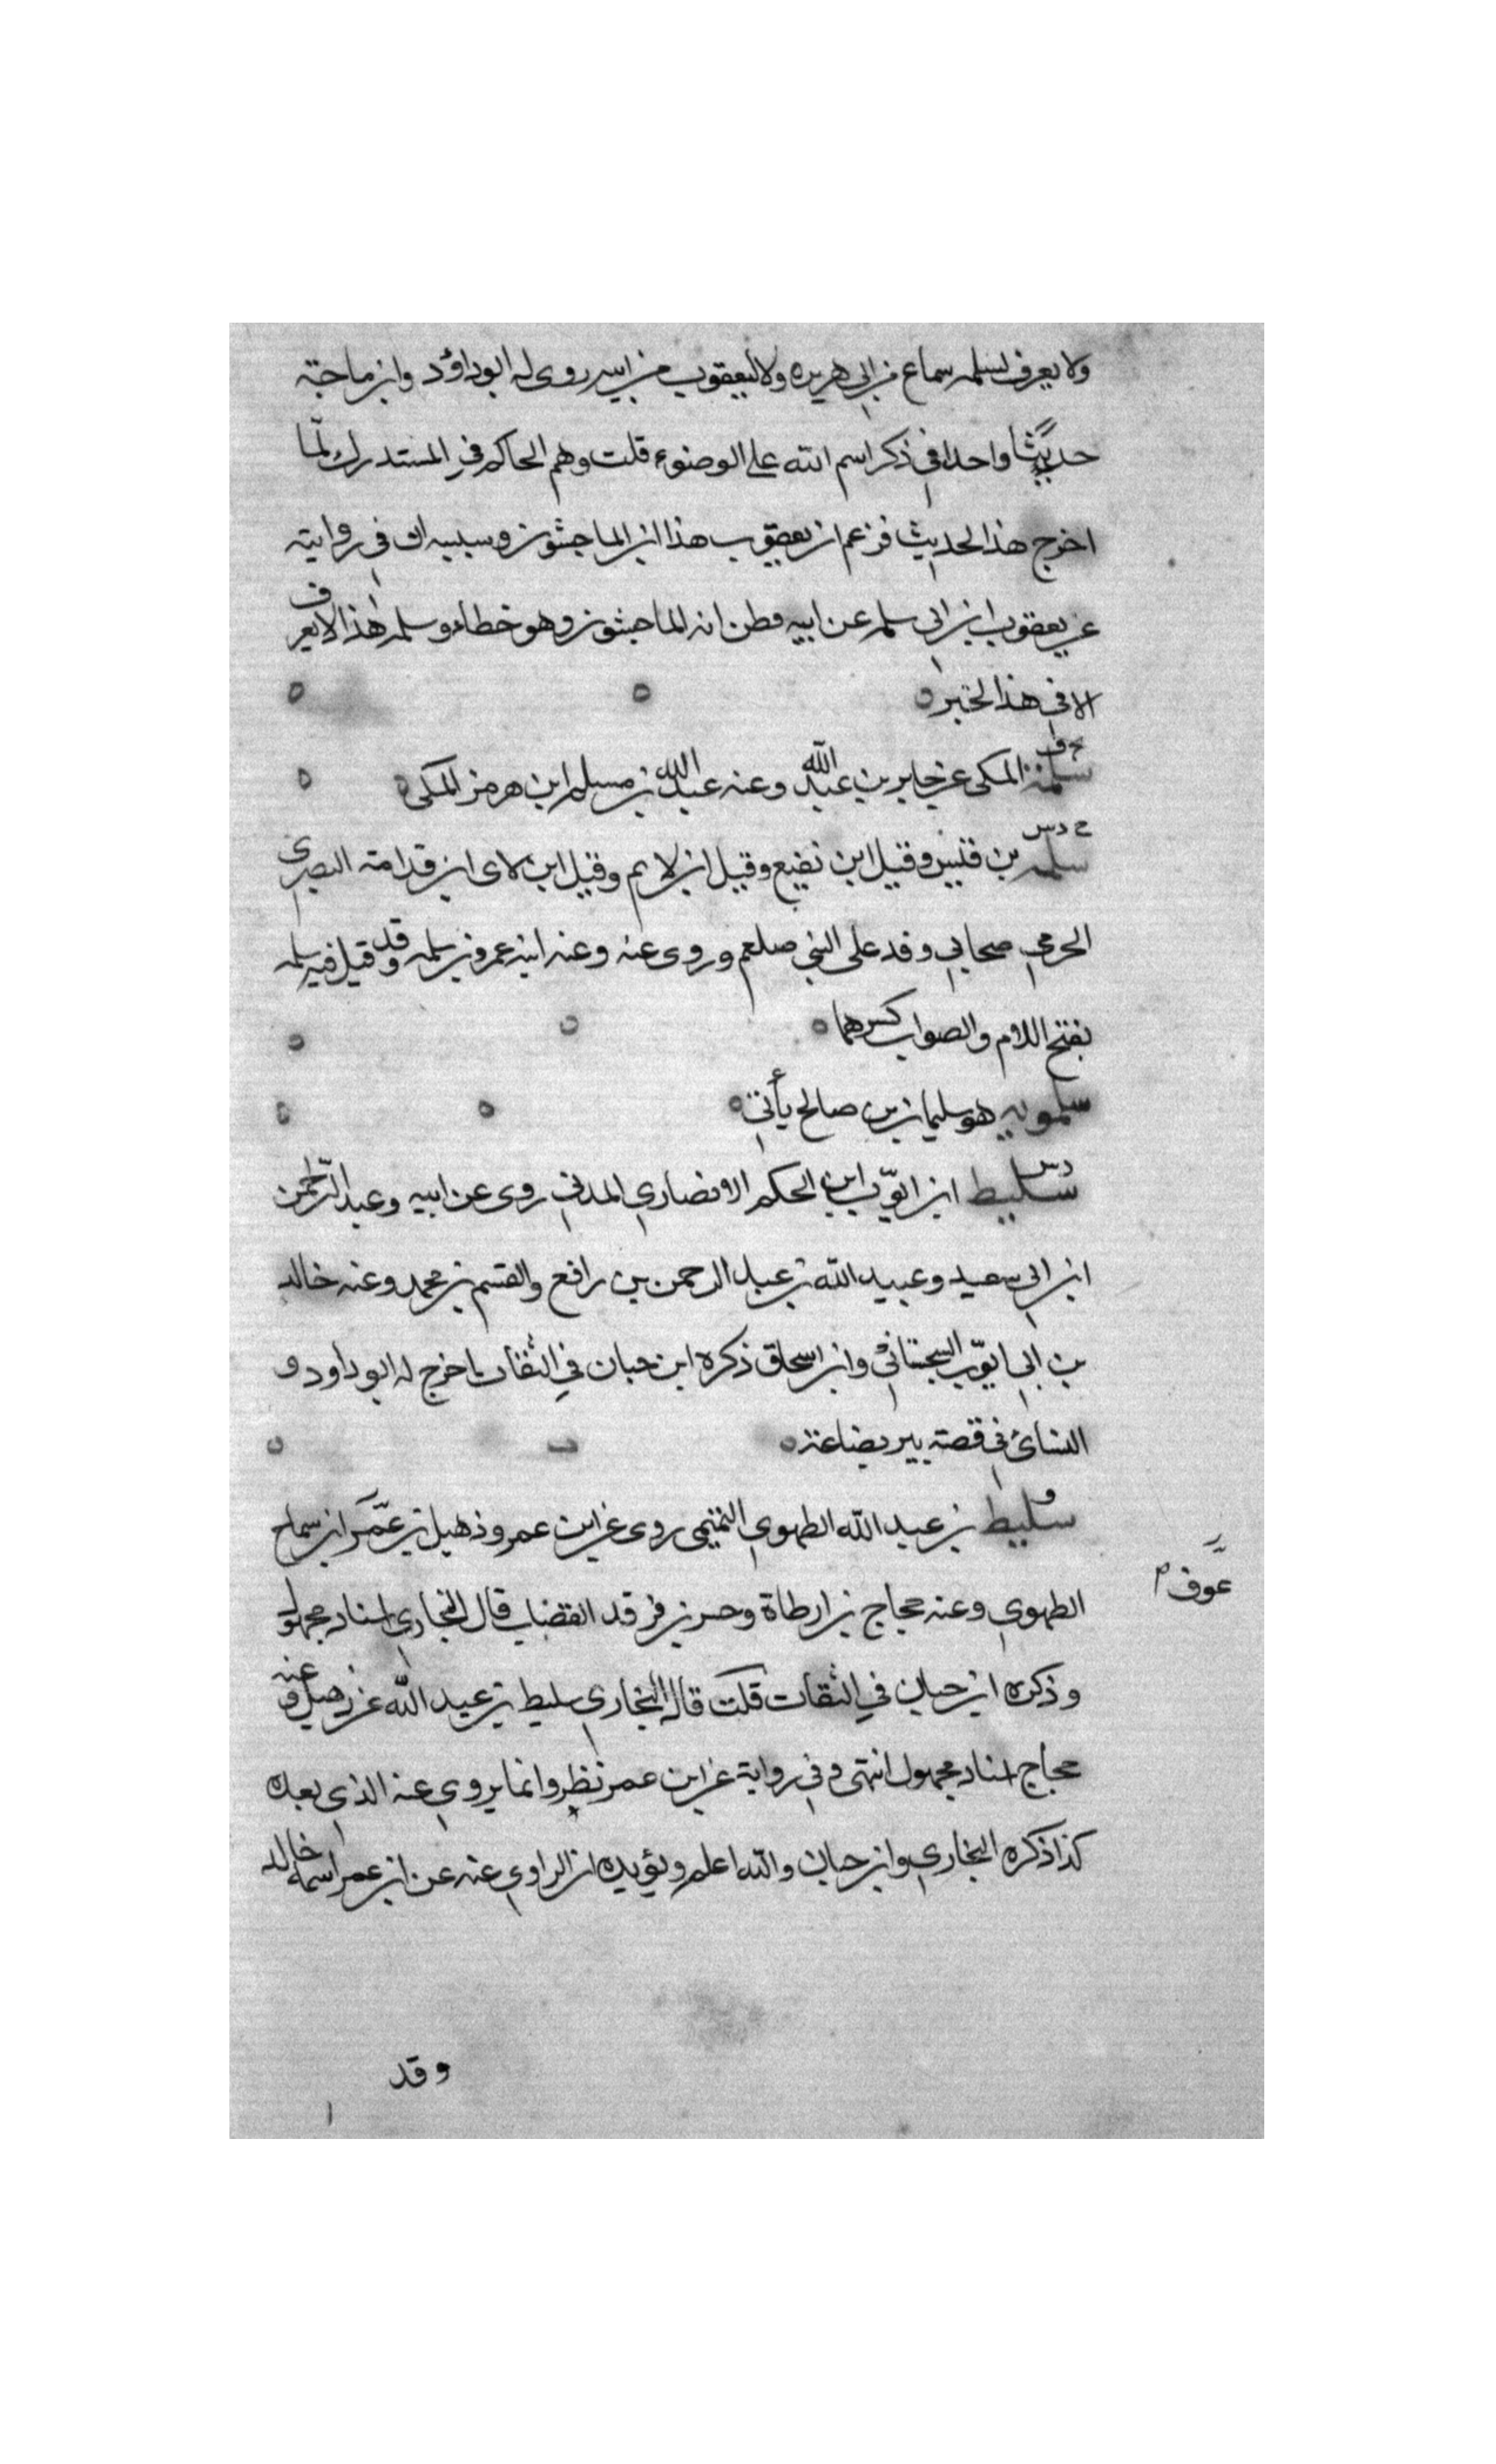 ولا يعرف لسلمه سماع من ابي هريره ولا ليعقوب من ابيه روى له ابوداؤد وابن ماجة
حديثا واحدا في ذكر اسم الله على الوضوء قلت وهم الحاكم في المستدرك لما
اخرج هذا الحديث فزعم ان يعقوب هذا ابن الماجشون وسببه ان في روايته
عن يعقوب ابن ابي سلمه عن ابيه فظن انه الماجشون وهو خطاء وسلمه هذا لا يعرف
الا في هذا الخبر
سلمة المكى عن جابر بن عبد الله وعنه عبد الله بن مسلم ابن هرمز المكى
خ د س
سلمه بن قيس وقيل ابن نفيع وقيل ابن لايم وقيل ابن لاى ابن قدامة البصرى
الجرمي صحابي وفد على النبي صلعم وروى عنه وعنه ابنه عمرو بن سلمه وقد قيل فيه سلمه
بفتح اللام والصواب كسرها
سلمويه هو سليمان بن صالح يأتي
د س
سليط ابن ايوب ابن الحكم الانصاري المدني روى عن ابيه وعبد الرحمن
ابن ابي سعيد وعبيد الله بن عبد الرحمن بن رافع والقسم بن محمد وعنه خالد
بن ابي ايوب السجستاني وابن اسحاق ذكره ابن حبان في الثقات اخرج له ابوداود و
النسائ في قصة بير بضاعة
سليط بن عبد الله الطهوي التميمى روى عن ابن عمر وذهيل بن عمر ابن سماح
عوف
الطهوي وعنه حجاج بن ارطاة وحسن بن فرقد القصاب قال البخاري اسناد مجهول
وذكره ابن حبان في الثقات قلت قال البخاري سليط بن عبد الله عن ذهيل وعنه
حجاج اسناد مجهول انتهى وفي رواية عن ابن عمر نظر وانما يروي عنه الذي بعده
كذا ذكره البخاري وابن حبان والله اعلم ويؤيده ان الراوي عنه عن ابن عمر اسمه خالد
وقد